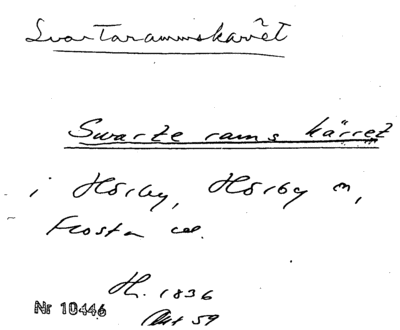 Svartarammskarret
Swarte rams kärret
i Hörby, Hörby sn,
Frosta hd.
H. 1836
Akt 59
Nr 10446